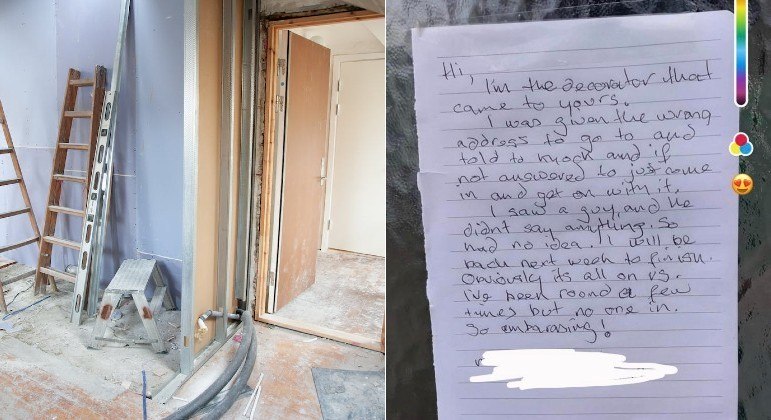 Hi,
I'm the decorator that
came to yours.
I was given the wrong
address to go to and
told to knock and if
not answered to just come
in and get on with it.
I saw a guy, and he
didnt say anything. So
had no idea. I will be
back next week to finish.
Obviously its all on us.
I've been round a few
times but no one in.
So embarasing!